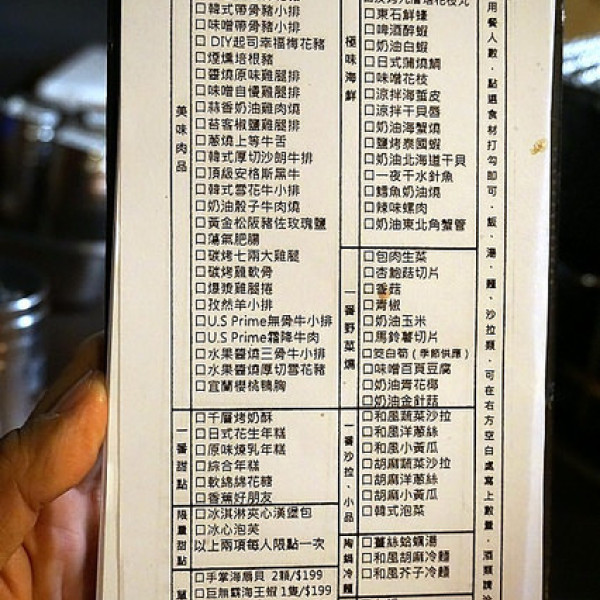 美味肉品
□韓式帶骨豬小排
□味噌帶骨豬小排
□DIY起司幸福梅花豬
□煙燻培根豬
□醬燒原味雞腿排
□味噌自慢雞腿排
□蒜香奶油雞肉燒
□苔客椒鹽雞腿排
□蔥燒上等牛舌
□韓式厚切沙朗牛排
□頂級安格斯黑牛
□韓式雪花牛小排
□奶油骰子牛肉燒
□黃金松阪豬佐玫瑰鹽
□蕩氣肥腸
□碳烤七兩大雞腿
□碳烤雞軟骨
□爆漿雞腿捲
□孜然羊小排
□U.S Prime無骨牛小排
□U.S Prime霜降牛肉
□水果醬燒三骨牛小排
□水果醬燒厚切雪花豬
□宜蘭櫻桃鴨胸
一番甜點
□千層烤奶酥
□日式花生年糕
□原味燒乳年糕
□綜合年糕
□軟綿綿花糖
□香蕉好朋友
限量甜點
□冰淇淋夾心漢堡包
□冰心泡芙
以上兩項每人限點一次
單
□手掌海扇貝 2顆/$199
□巨無霸海王蝦 1隻/$199
極味海鮮
□東石鮮蠔
□啤酒醉蝦
□奶油白蝦
□日式蒲燒鯛
□味噌花枝
□涼拌海蜇皮
□涼拌干貝唇
□奶油海蟹燒
□鹽烤泰國蝦
□奶油北海道干貝
□一夜干水針魚
□鱈魚奶油燒
□辣味螺肉
□奶油東北角蟹管
一番野菜燒
□包肉生菜
□杏鮑菇切片
□香菇
□青椒
□奶油玉米
□馬鈴薯切片
□茭白筍（季節供應）
□味噌百頁豆腐
□奶油青花椰
□奶油金針菇
一番沙拉、小品
□和風蔬菜沙拉
□和風洋蔥絲
□和風小黃瓜
□胡麻蔬菜沙拉
□胡麻洋蔥絲
□胡麻小黃瓜
□韓式泡菜
陶鍋冷麵
□薑絲蛤蠣湯
□和風胡麻冷麵
□和風芥子冷麵
用餐人數，點選食材打勾即可，飯、湯、麵、沙拉類，可在右方空白處寫上數量，酒類請